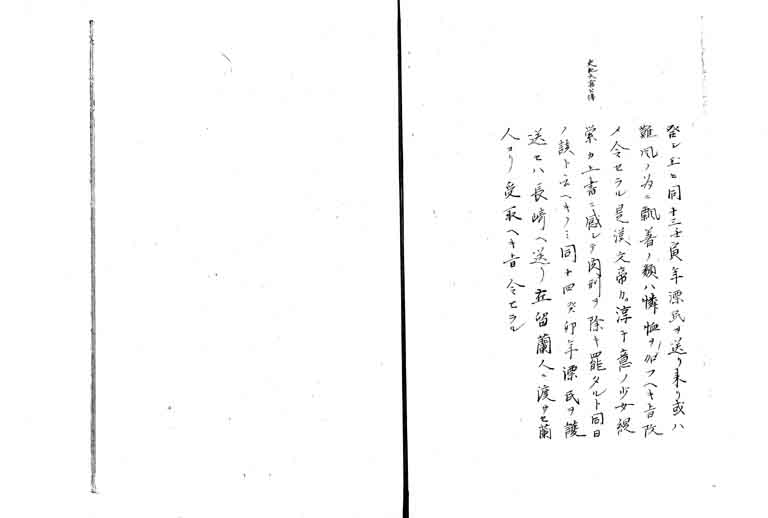 発シ玉ヒ同十三壬寅年漂民ヲ送リ来リ或ハ
難風ノ為ニ飄着ノ類ハ憐恤ヲ加フヘキ旨改
メ令セラル是漢文帝カ淳于意ノ少女緹
縈カ上書ニ感シテ肉刑ヲ除キ罷タルト同日
ノ談ト云ヘキノミ同十四癸卯年漂民ヲ護
送セハ長崎ヘ送リ在留蘭人ニ渡サセ蘭
人ヨリ受取ヘキ旨令セラル